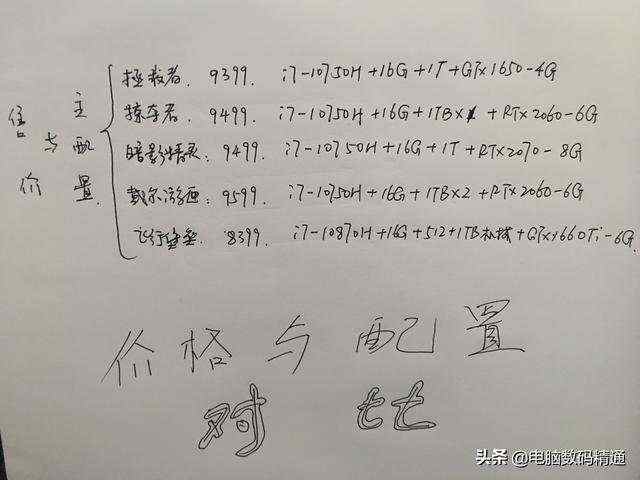 拯救者. 9399. i7-10750H+16G+1T+GTx1650-4G
掠夺者. 9499. i7-10750H+16G+1TB×1+RTx2060-6G
售价与主配置
暗影精灵: 9499. i7-10750H+16G+1T+RTX2070-8G
戴尔游匣: 9599. i7-10750H+16G+1TB×2+RTX2060-6G
飞行堡垒. 8399. i7-10870H+16G+512+1TB机械+GTx1660Ti-6G.
价格与配置
对比
头条 @电脑数码精通